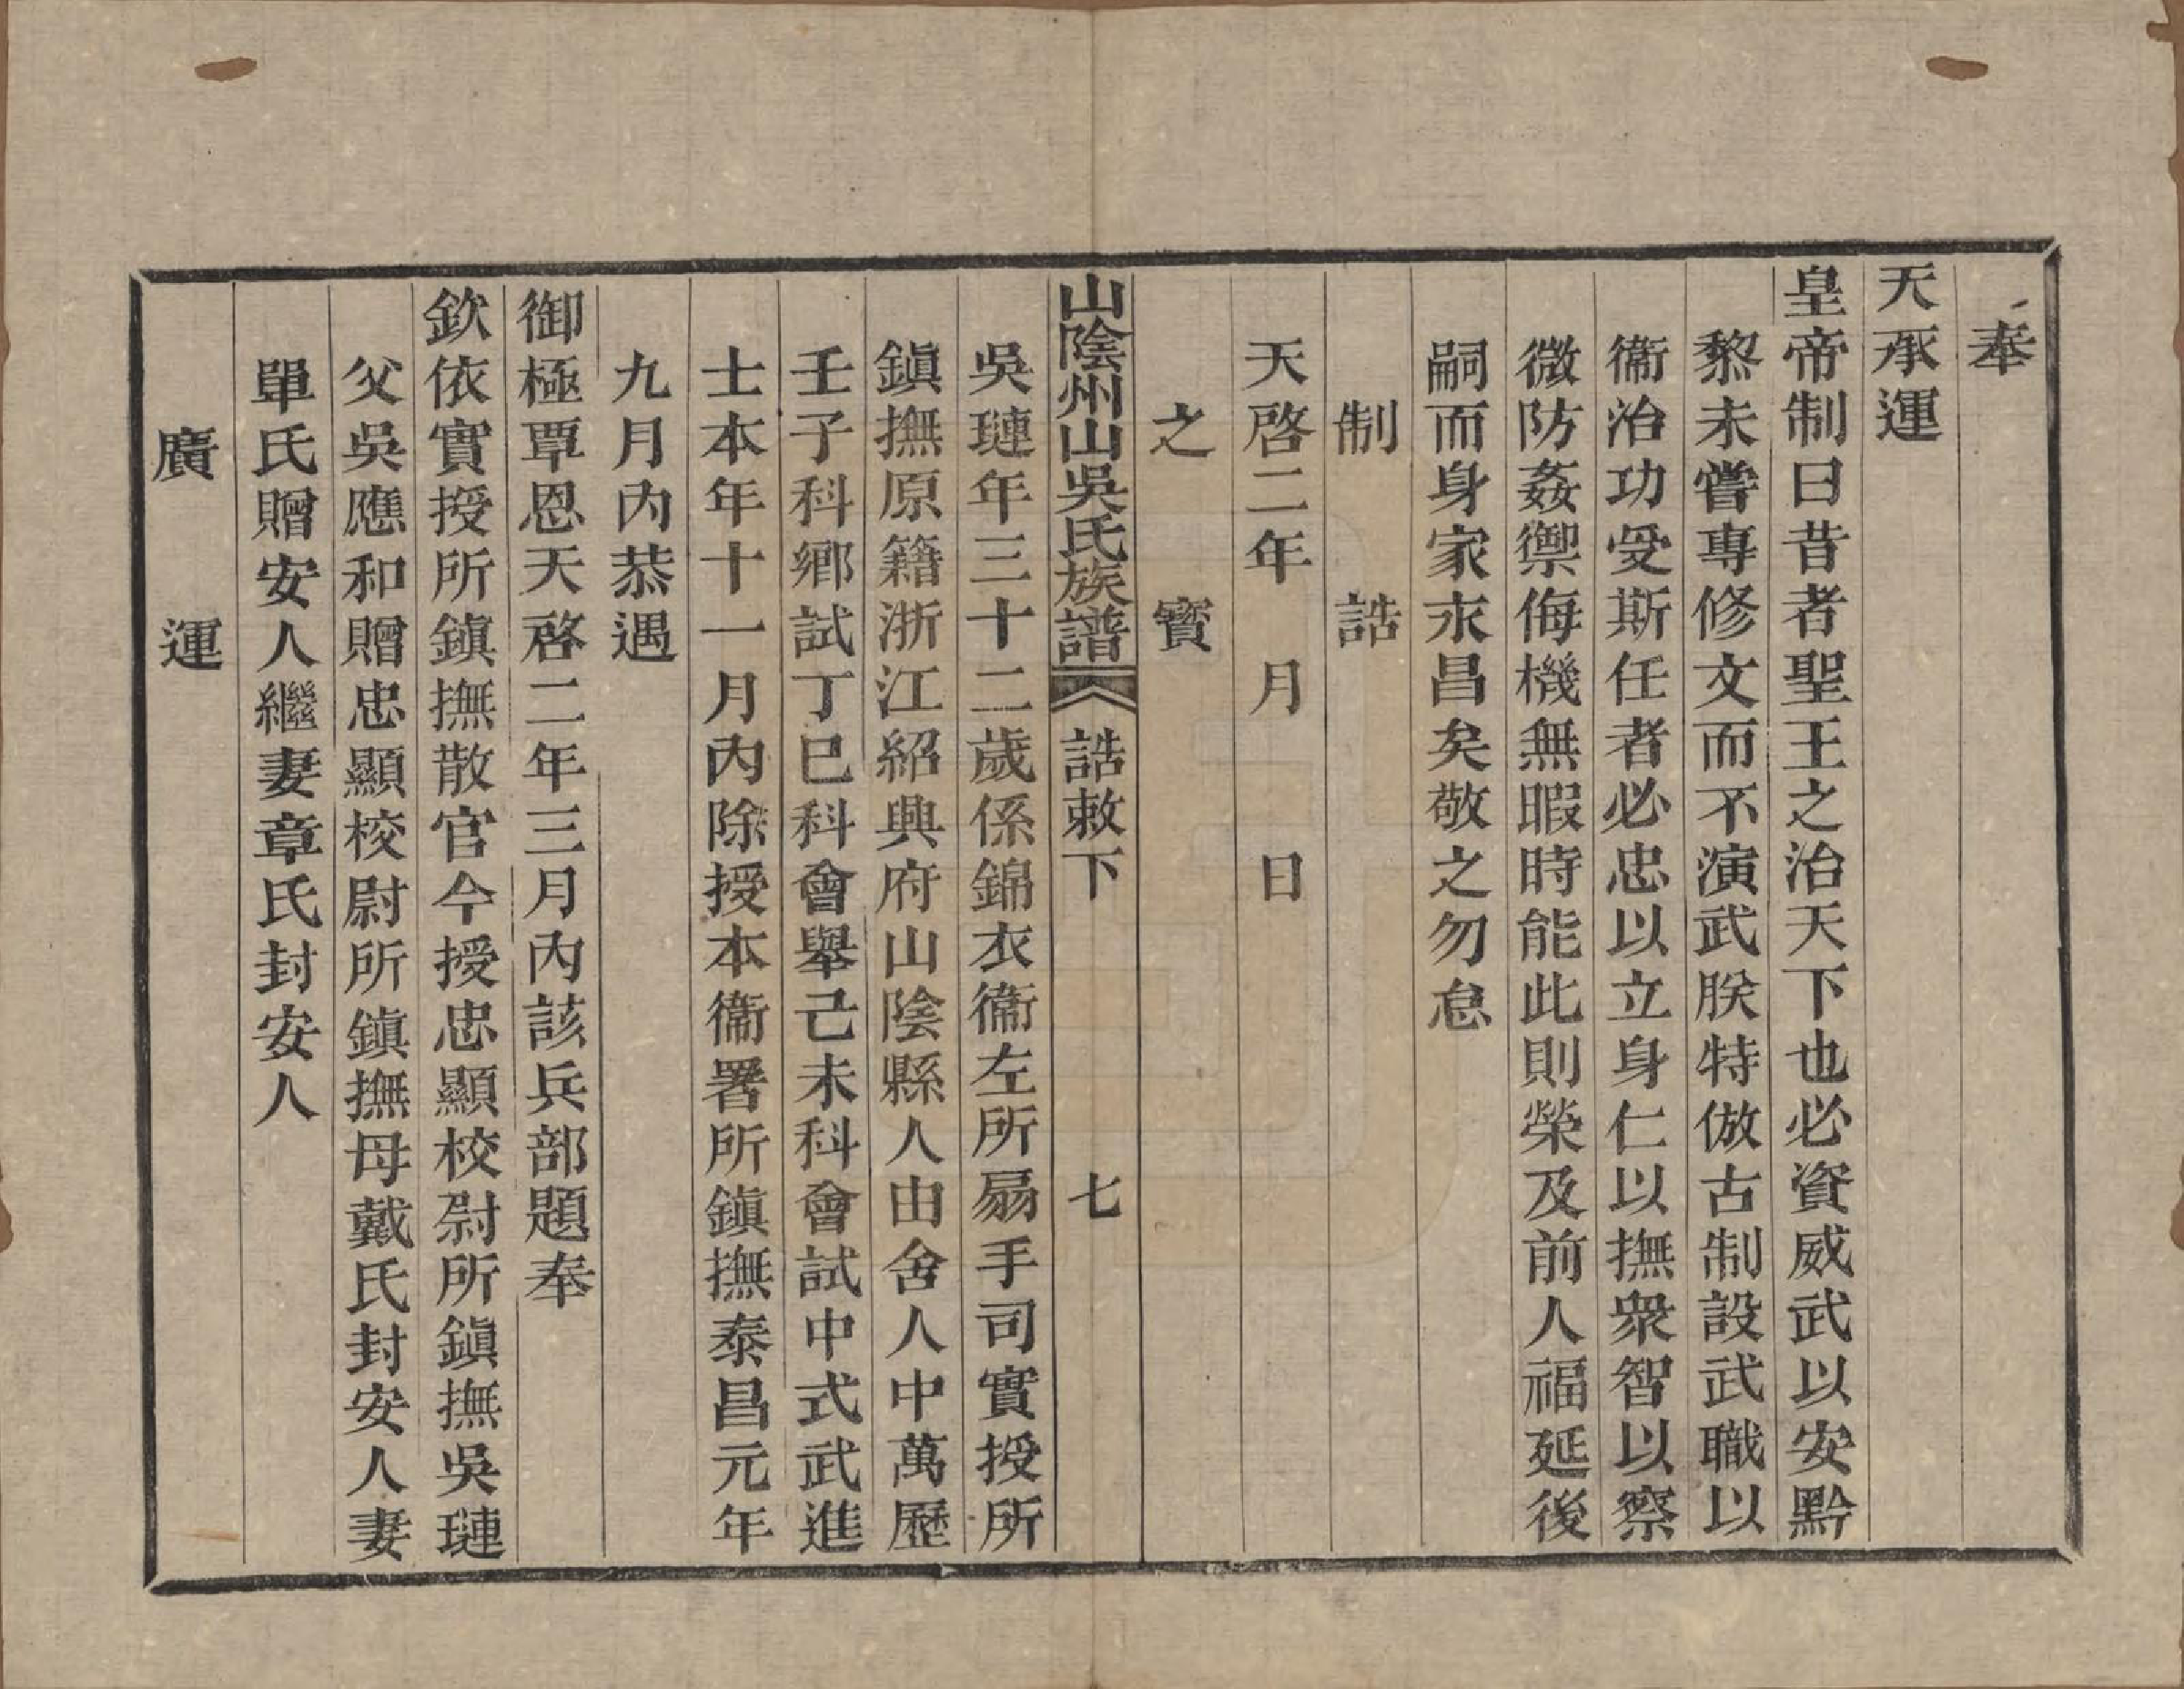 奉
天承運
皇帝制曰昔者聖王之治天下也必資威武以安黔
黎未嘗專修文而不演武朕特倣古制設武職以
衞治功受斯任者必忠以立身仁以撫衆智以察
微防姦禦侮機無暇時能此則榮及前人福延後
嗣而身家永昌矣敬之勿怠
制誥
天啓二年　月　日
之寳
山陰州山吳氏族譜　誥敕下　七
吳璉年三十二歲係錦衣衞左所扇手司實授所
鎭撫原籍浙江紹興府山陰縣人由舍人中萬歷
壬子科鄉試丁巳科會舉己未科會試中式武進
士本年十一月內除授本衞署所鎭撫泰昌元年
九月內恭遇
御極覃恩天啓二年三月內該兵部題奉
欽依實授所鎭撫散官今授忠顯校尉所鎭撫吳璉
父吳應和贈忠顯校尉所鎭撫母戴氏封安人妻
單氏贈安人繼妻章氏封安人
廣運